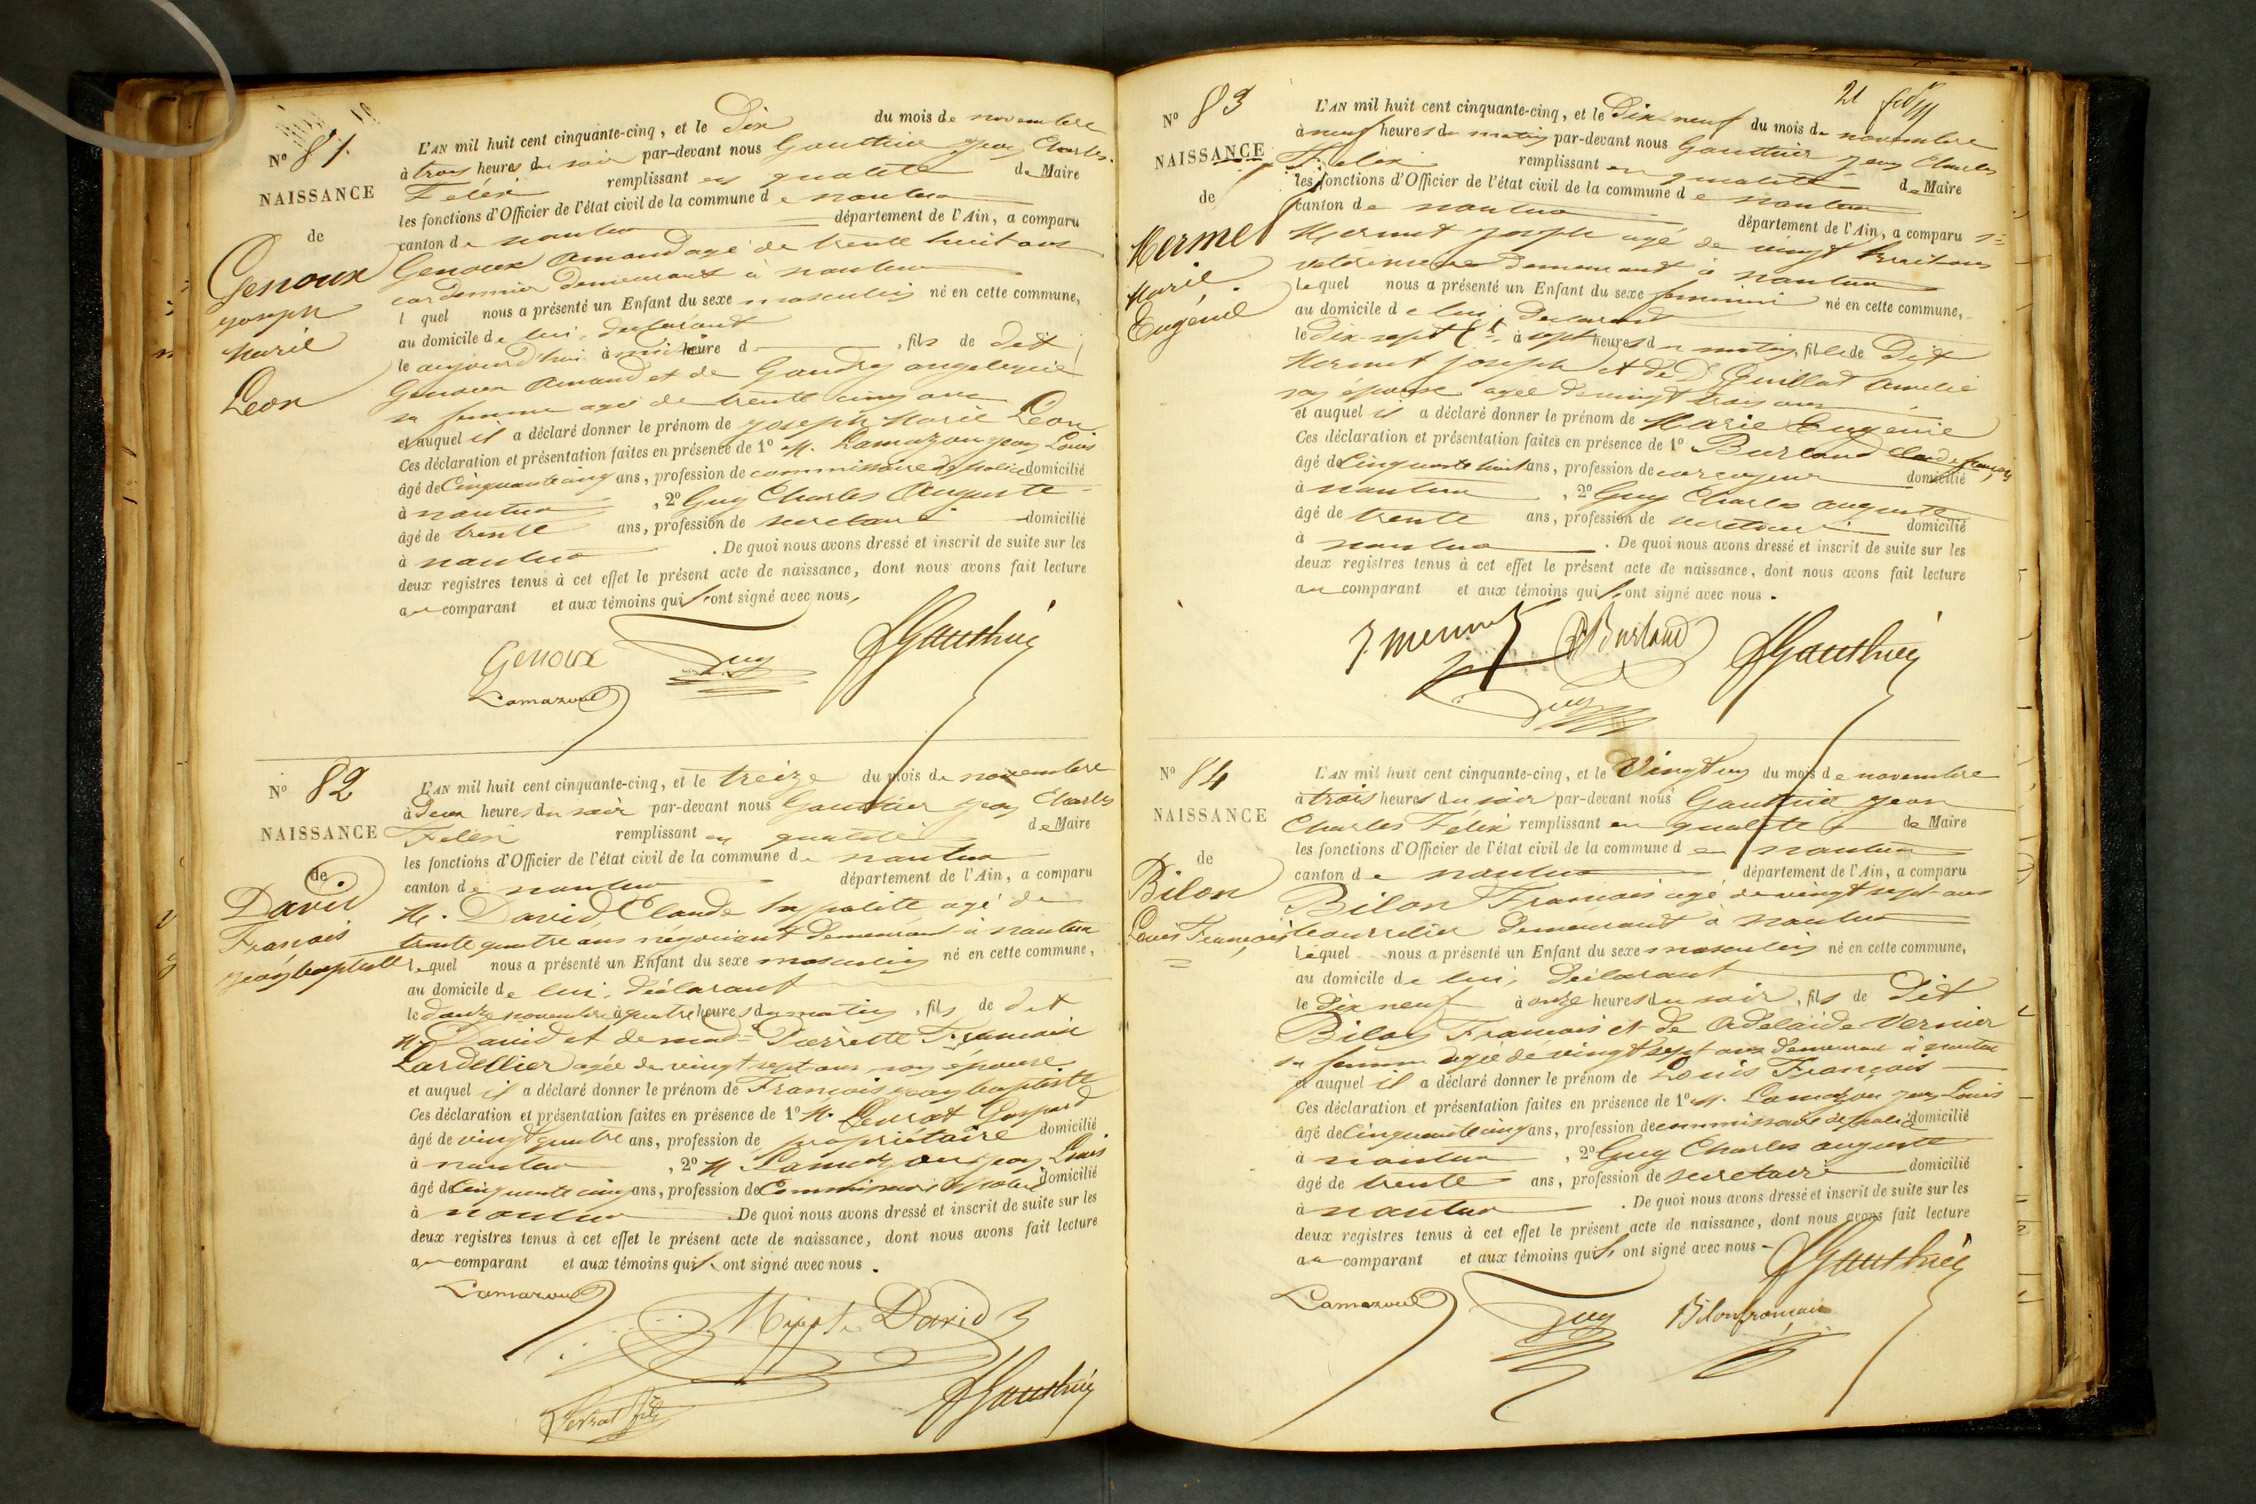 N° 81.
NAISSANCE
de
Genoux
Joseph
Marie
Léon
L'AN mil huit cent cinquante-cinq, et le Dix du mois de novembre
à trois heures du soir par-devant nous Gauthier Jean Charles
Félix remplissant en qualité de Maire
les fonctions d'Officier de l'état civil de la commune de nantua
canton de nantua département de l'Ain, a comparu
Genoux Amand agé de trente huit ans
cordonnier demeurant à nantua
l quel nous a présenté un Enfant du sexe masculin né en cette commune,
au domicile de lui, déclarant
le aujourd'hui à midi heure d , fils de dit
Genoux Amand et de Gaudry angelique
sa femme agée de trente cinq ans
et auquel il a déclaré donner le prénom de Joseph Marie Léon
Ces déclaration et présentation faites en présence de 1° M. Lamazou Jean Louis
âgé de Cinquante cinq ans, profession de commissaire de police domicilié
à nantua , 2° Guy Charles Auguste
âgé de trente ans, profession de secretaire domicilié
à nantua . De quoi nous avons dressé et inscrit de suite sur les
deux registres tenus à cet effet le présent acte de naissance, dont nous avons fait lecture
au comparant et aux témoins qui ont signé avec nous,
Genoux Guy Gauthier
Lamazou
N° 82
NAISSANCE
de
David
François
Jean baptiste
L'AN mil huit cent cinquante-cinq, et le treize du mois de novembre
à Deux heures du soir par-devant nous Gauthier Jean Charles
Félix remplissant en qualité de Maire
les fonctions d'Officier de l'état civil de la commune de nantua
canton de nantua département de l'Ain, a comparu
M. David, Claude hyppolite agé de
trente quatre ans négociant demeurant à nantua
lequel nous a présenté un Enfant du sexe masculin né en cette commune,
au domicile de lui, déclarant
le douze novembre à quatre heures du matin, fils de dit
M. David et de mad Pierrette Françoise
Lardellier agée de vingt sept ans son épouse
et auquel il a déclaré donner le prénom de François Jean baptiste
Ces déclaration et présentation faites en présence de 1° M. Gaspard
âgé de vingt quatre ans, profession de propriétaire domicilié
à nantua , 2° M Lamazou Jean Louis
âgé de Cinquante cinq ans, profession de Commissaire de police domicilié
à nantua . De quoi nous avons dressé et inscrit de suite sur les
deux registres tenus à cet effet le présent acte de naissance, dont nous avons fait lecture
au comparant et aux témoins qui ont signé avec nous.
Lamazou David
Gauthier
21
N° 83
NAISSANCE
de
Mermet
Marie
Eugénie
L'AN mil huit cent cinquante-cinq, et le Dix-neuf du mois de novembre
à neuf heures du matin par-devant nous Gauthier Jean Charles
Félix remplissant en qualité de Maire
les fonctions d'Officier de l'état civil de la commune de nantua
canton de nantua département de l'Ain, a comparu
Mermet Joseph agé de vingt huit ans
vétérinaire demeurant à nantua
lequel nous a présenté un Enfant du sexe feminin né en cette commune,
au domicile de lui, Déclarant
le Dix-sept à sept heures du matin, fille de Dit
Mermet Joseph et de D Guillot Amelie
son épouse agée de vingt trois ans
et auquel il a déclaré donner le prénom de Marie Eugénie
Ces déclaration et présentation faites en présence de 1° Burland Claude françois
âgé de Cinquante huit ans, profession de corroyeur domicilié
à nantua , 2° Guy Charles auguste
âgé de trente ans, profession de secretaire domicilié
à nantua . De quoi nous avons dressé et inscrit de suite sur les
deux registres tenus à cet effet le présent acte de naissance, dont nous avons fait lecture
au comparant et aux témoins qui ont signé avec nous.
J. Mermet Burland Gauthier
Guy
N° 84
NAISSANCE
de
Bilon
Louis François
L'AN mil huit cent cinquante-cinq, et le Vingt un du mois de novembre
à trois heures du soir par-devant nous Gauthier Jean
Charles Félix remplissant en qualité de Maire
les fonctions d'Officier de l'état civil de la commune de nantua
canton de nantua département de l'Ain, a comparu
Bilon François agé de vingt sept ans
bourrelier demeurant à nantua
lequel nous a présenté un Enfant du sexe masculin né en cette commune,
au domicile de lui, déclarant
le dix neuf à onze heures du soir, fils de Dit
Bilon François et de Adelaide Vernier
sa femme agée de vingt sept ans demeurant à nantua
et auquel il a déclaré donner le prénom de Louis François
Ces déclaration et présentation faites en présence de 1° M. Lamazou Jean Louis
âgé de Cinquante cinq ans, profession de commissaire de police domicilié
à nantua , 2° Guy Charles auguste
âgé de trente ans, profession de secretaire domicilié
à nantua . De quoi nous avons dressé et inscrit de suite sur les
deux registres tenus à cet effet le présent acte de naissance, dont nous avons fait lecture
au comparant et aux témoins qui ont signé avec nous
Gauthier
Lamazou Guy Bilon françois